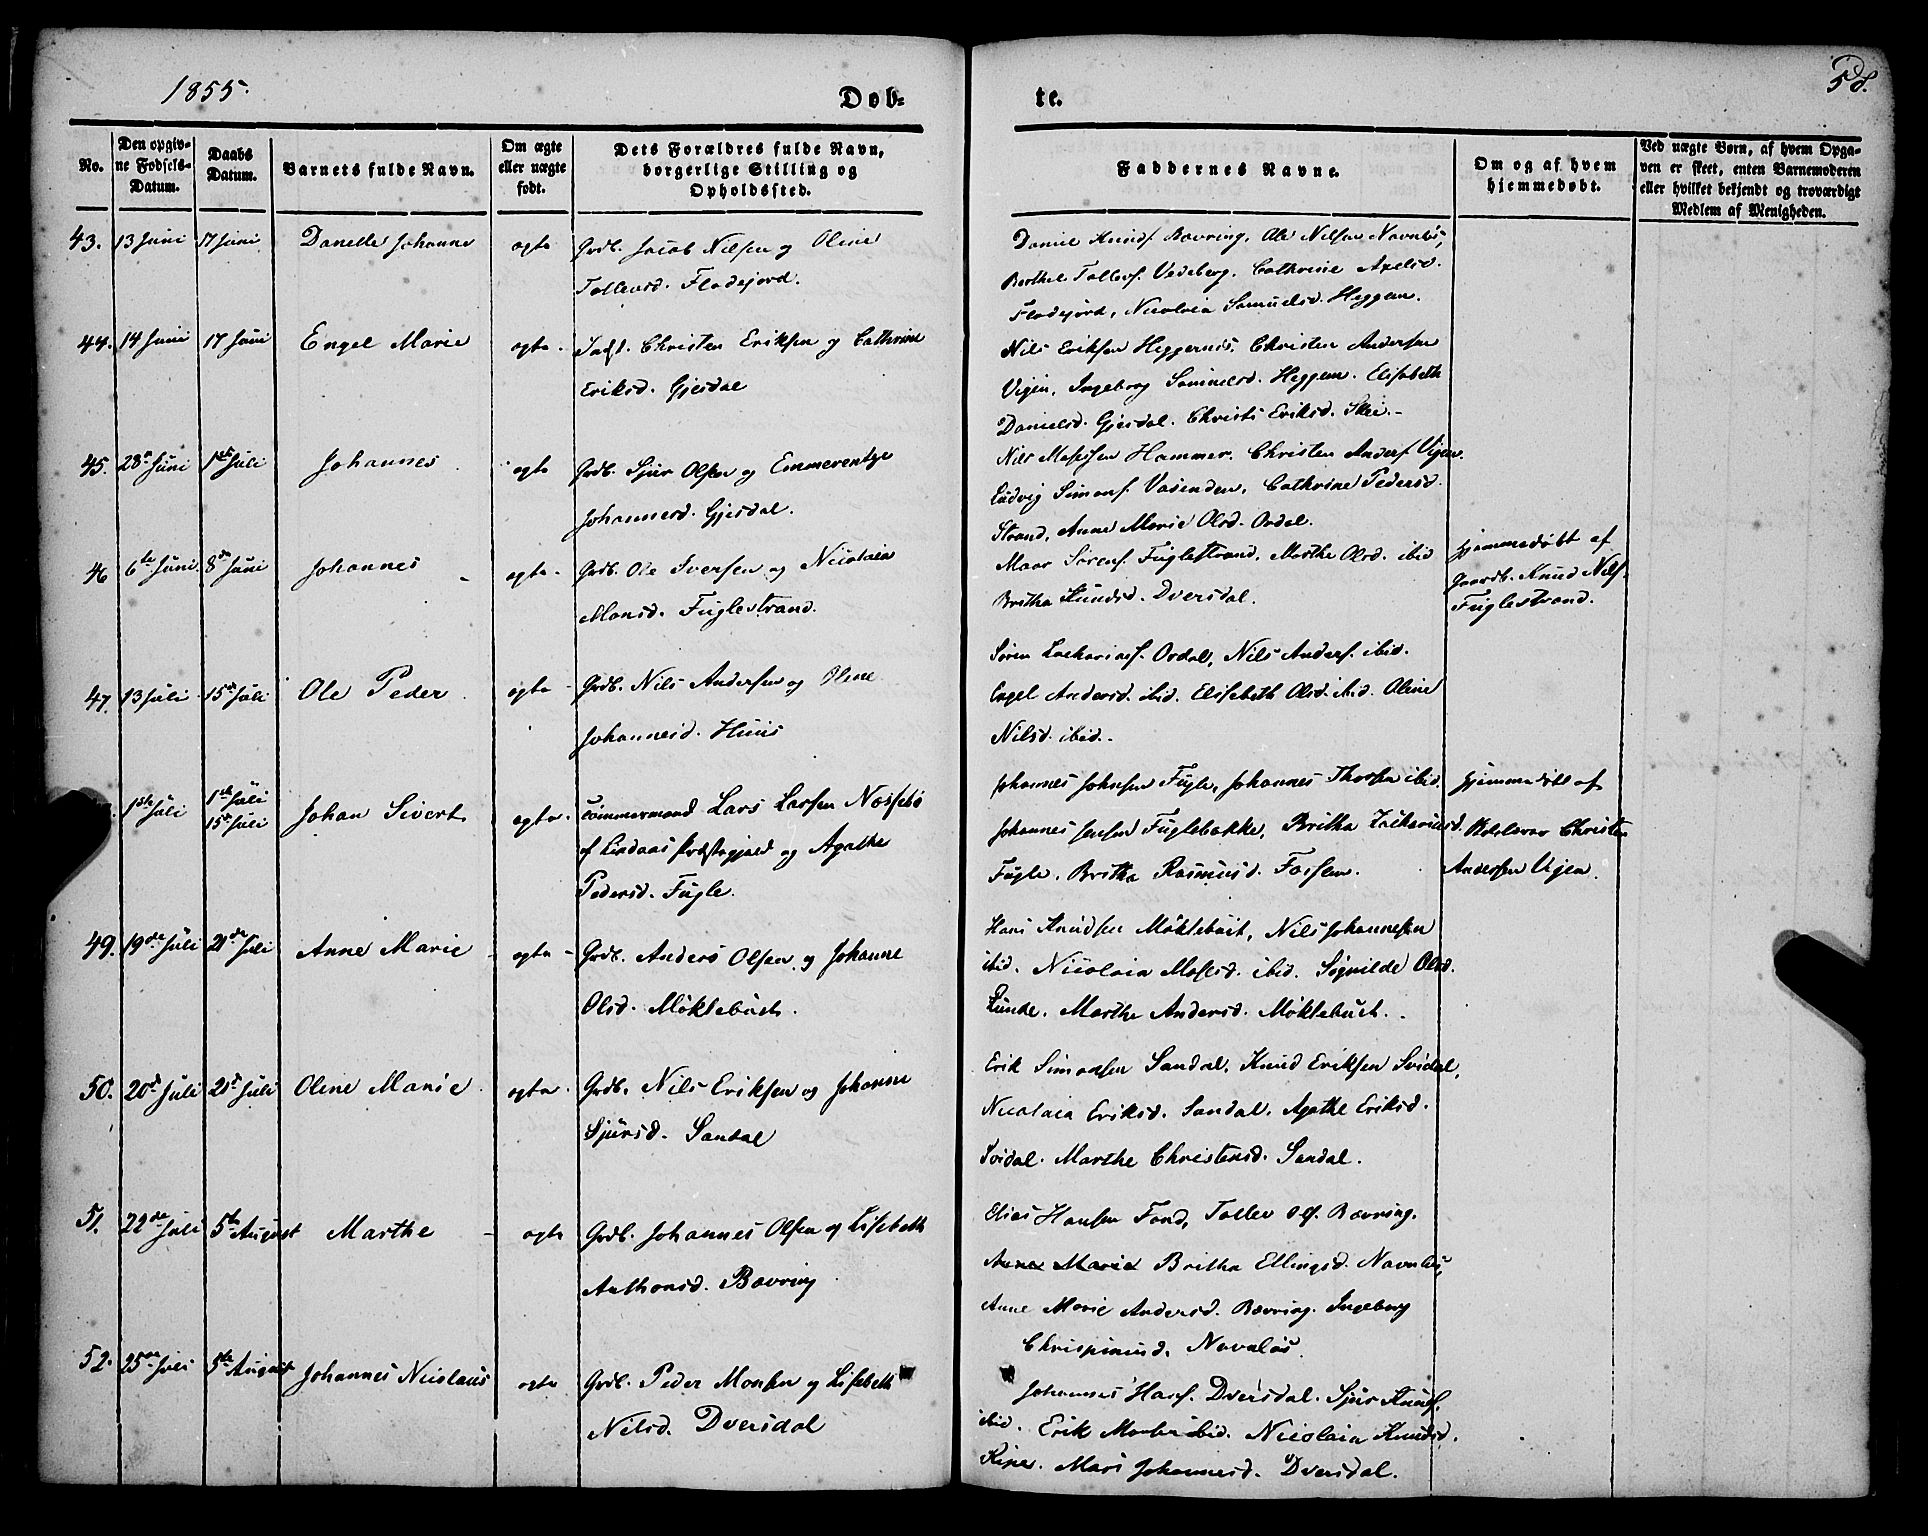 1855.
Døb-
te.
58.
No.
Den opgiv-
ne Fødsels-
Datum.
Daabs
Datum.
Barnets fulde Navn.
Om ægte
eller uægte
født.
Dets Forældres fulde Navn,
borgerlige Stilling og
Opholdssted.
Faddernes Navne.
Om og af hvem
hjemmedøbt.
Ved uægte Børn, af hvem Opga-
ven er skeet, enten Barnemoderen
eller hvilket bekjendt og troværdigt
Medlem af Menigheden.
43. 13 Juni 17 Juni Danelle Johanne ægte Grdb. Jacob Nilsen og Oline
Tollevsd. Flodejord.
Daniel Knuds. Bævring, Ole Nilsen Navnløs,
Berthel Tollevs. Vedeberg. Cathrine Axelsd.
Flodejord, Nicolaia Samuelsd. Heggem.
44. 14 Juni 17 Juni Engel Marie ægte Indst. Christen Eriksen og Cathrine
Eriksd. Gjesdal
Nils Eriksen Heggernes, Christen Andersen
Vigen, Ingeborg Samuelsd. Heggem. Elisabeth
Danielsd. Gjesdal. Christi Eriksd. Skei.
45. 28 Juni 1ste Juli Johannes ægte Grdb. Sjur Olsen og Emmerentze
Johannesd. Gjesdal.
Nils Mosesen Hammer. Christen Anders. Vigen.
Ludvig Simons. Vasenden, Cathrine Pedersd.
Strand, Anne Marie Olsd. Ordal.
46 6te Juni 8de Juni Johannes ægte Grdb. Ole Iversen og Nicolaia
Monsd. Fuglestrand.
Sørens. Fuglestrand, Marthe Olsd. ibid
Britha Knudsd. Dversdal.
Hjemmedøbt af
Gaardb. Knud Nils.
Fuglestrand.
47. 13 Juli 15de Juli Ole Peder ægte Grdb. Nils Andersen og Oline
Johannesd. Huus
Søren Zacharias. Ordal, Nils Anders. ibid.
Engel Andersd. ibid. Elisabeth Olsd. ibid. Oline
Nilsd. ibid.
1ste Juli 1ste Juli
15de Juli Johan Sivert ægte Tømmermand Lars Larsen Næssebø
af Lindaas Præstegjæld og Agathe
Pedersd. Fugle.
Johannes Johnsen Fugle, Johannes Thorsen ibid.
Johannes Jensen Fuglebakke, Britha Zachariasd.
Fugle. Britha Rasmusd. Fossen.
Hjemmedøbt af
Christen
Andersen Vigen.
49. 19de Juli 21de Juli Anne Marie ægte Grdb. Anders Olsen og Johanne
Olsd. Møklebust.
Hans Knudsen Møklebust, Nils Johannesen
ibid. Nicolaia Mosesd. ibid. Sognilde Olsd.
Lunde. Marthe Andersd. Møklebust.
50. 20de Juli 21de Juli Oline Marie ægte Grdb. Nils Eriksen og Johanne
Sjursd. Sandal
Erik Simonsen Sandal, Knud Eriksen Svidal,
Nicolaia Eriksd. Sandal. Agathe Eriksd.
Svidal. Marthe Christensd. Sandal.
51. 22de Juli 5te August Marthe ægte Grdb. Johannes Olsen og Lisebeth
Anthonsd. Bævring
Elias Hansen Fond, Tollev Ols. Bævring.
Anne Marie Britha Ellingsd. Navnløs,
Anne Marie Andersd. Bævring. Ingeborg
Navnløs.
52. 25de Juli 5te August Johannes Nicolaus ægte Grdb. Peder Monsen og Lisebeth
Nilsd. Dversdal
Johannes Hans. Dversdal. Sjur Knuds.
ibid. Erik Monsen ibid. Nicolaia Knudsd.
Johannesd. Dversdal.